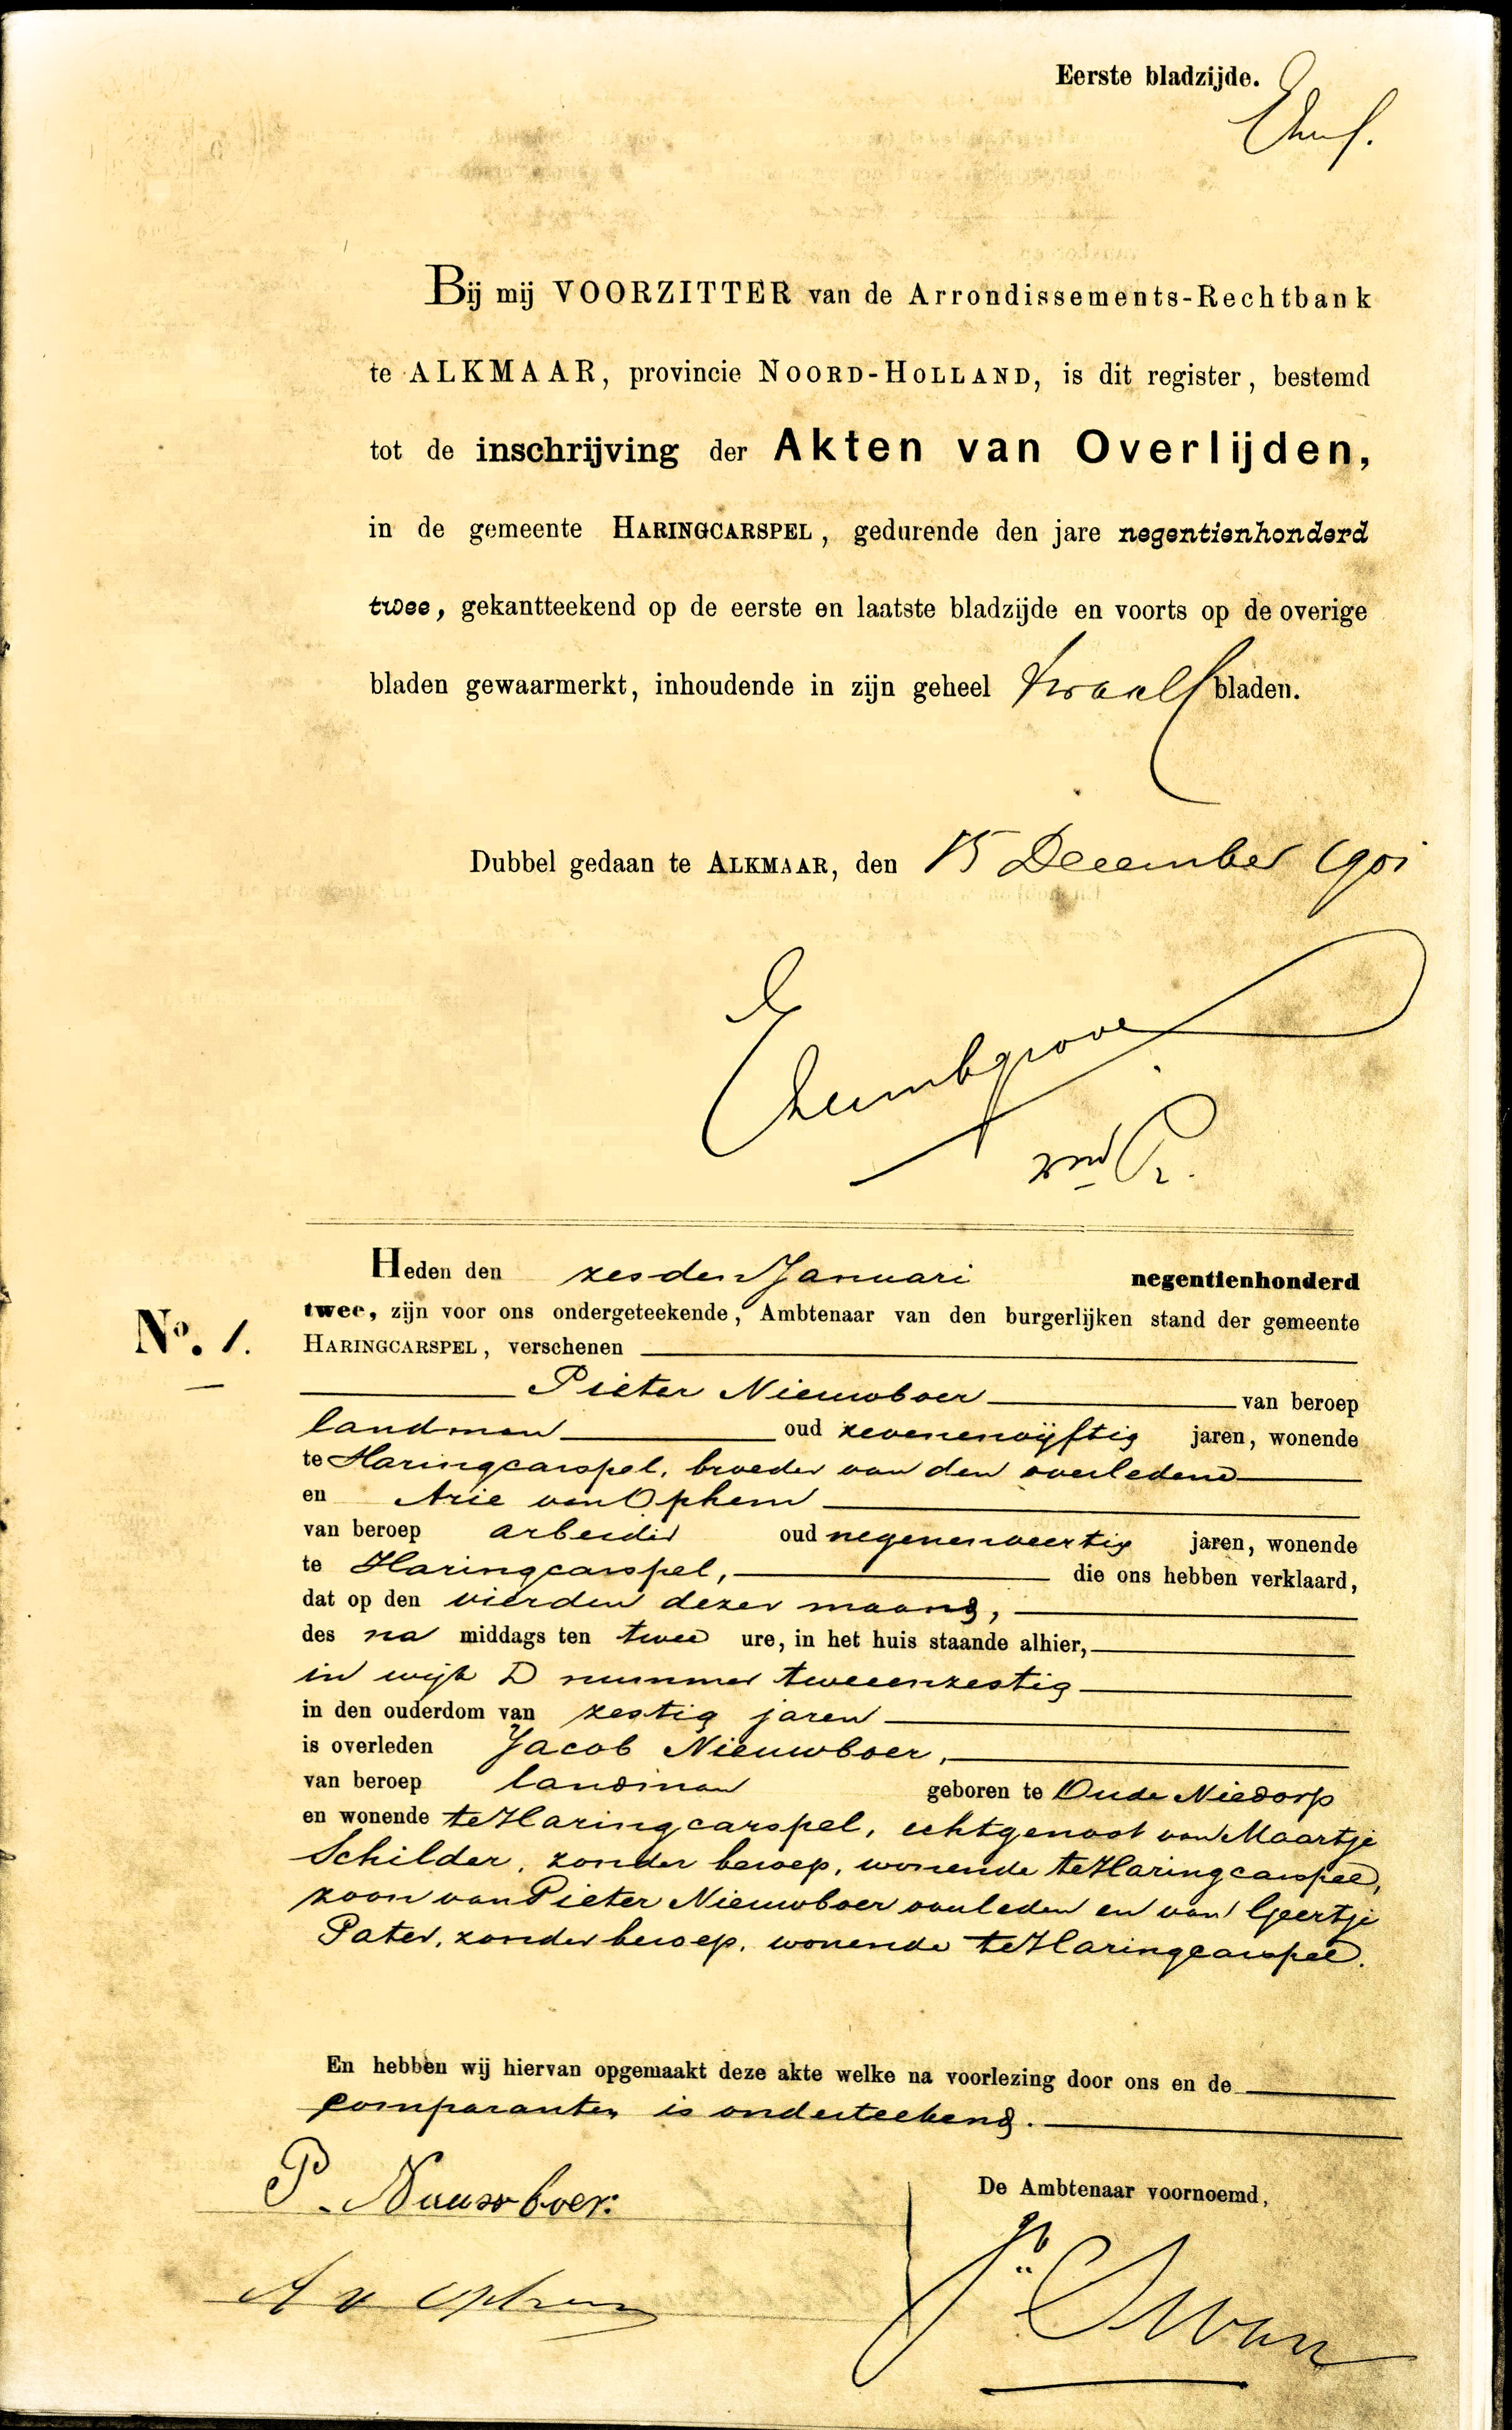 Eerste bladzijde.
Bij mij VOORZITTER van de Arrondissements-Rechtbank
te ALKMAAR, provincie NOORD-HOLLAND, is dit register, bestemd
tot de inschrijving der Akten van Overlijden,
in de gemeente HARINGCARSPEL, gedurende den jare negentienhonderd
twee, gekantteekend op de eerste en laatste bladzijde en voorts op de overige
bladen gewaarmerkt, inhoudende in zijn geheel twaalf bladen.
Dubbel gedaan te ALKMAAR, den 15 December 1901
Heden den zesden Januari negentienhonderd
twee, zijn voor ons ondergeteekende, Ambtenaar van den burgerlijken stand der gemeente
No. 1.
HARINGCARSPEL, verschenen
Pieter Nieuwboer van beroep
landman oud zevenenvijftig jaren, wonende
te Haringcarspel, broeder van den overledene
en Arie van Ophem
van beroep arbeider oud negenenveertig jaren, wonende
te Haringcarspel, die ons hebben verklaard,
dat op den vierden dezer maand,
des na middags ten twee ure, in het huis staande alhier,
in wijk D nummer tweeenzestig
in den ouderdom van zestig jaren
is overleden Jacob Nieuwboer,
van beroep landman geboren te Oude Niedorp
en wonende te Haringcarspel, echtgenoot van Maartje
Schilder, zonder beroep, wonende te Haringcarspel,
zoon van Pieter Nieuwboer overleden en van Geertje
Pater, zonder beroep, wonende te Haringcarspel.
En hebben wij hiervan opgemaakt deze akte welke na voorlezing door ons en de
comparanten is onderteekend.
P. Nieuwboer.
De Ambtenaar voornoemd,
A v Ophem